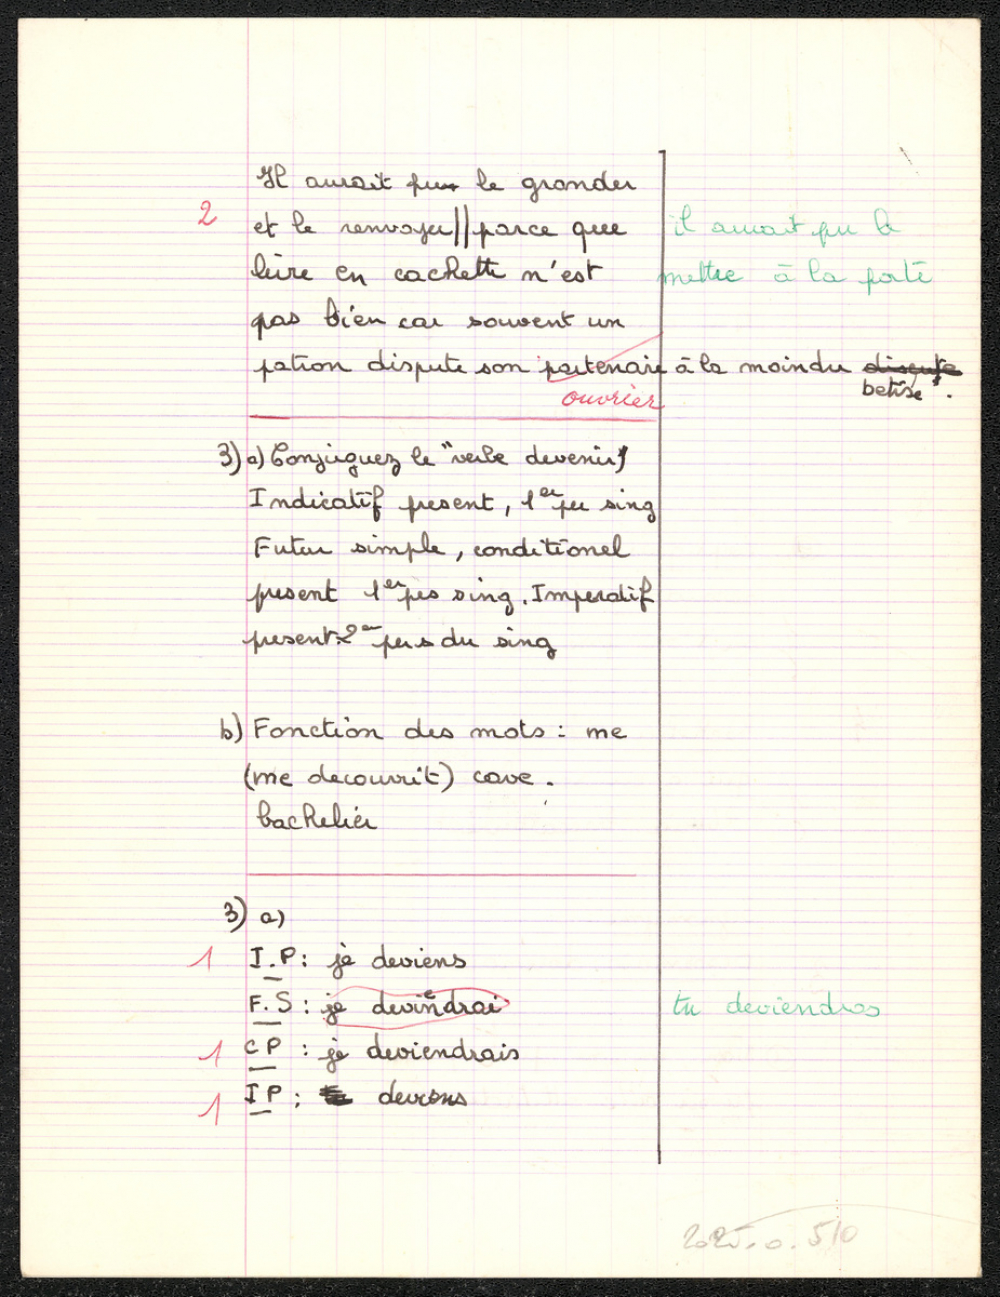 Il aurait pu le gronder
2 et le renvoyer || parce que il aurait pu le
lire en cachette n'est mettre à la porte
pas bien car souvent un
patron dispute son partenaire à la moindre dispute
ouvrier betise".
3) a) Conjuguez le "verbe devenir"
Indicatif present, 1er per sing
Futur simple, conditionel
present 1er pers sing. Imperatif
present 2em pers du sing
b) Fonction des mots : me
(me decouvrit) cave.
bachelier
3) a)
1 I.P: je deviens
F.S: je deviendrai tu deviendras
1 C P : je deviendrais
1 I P : deviens
2025.0.510